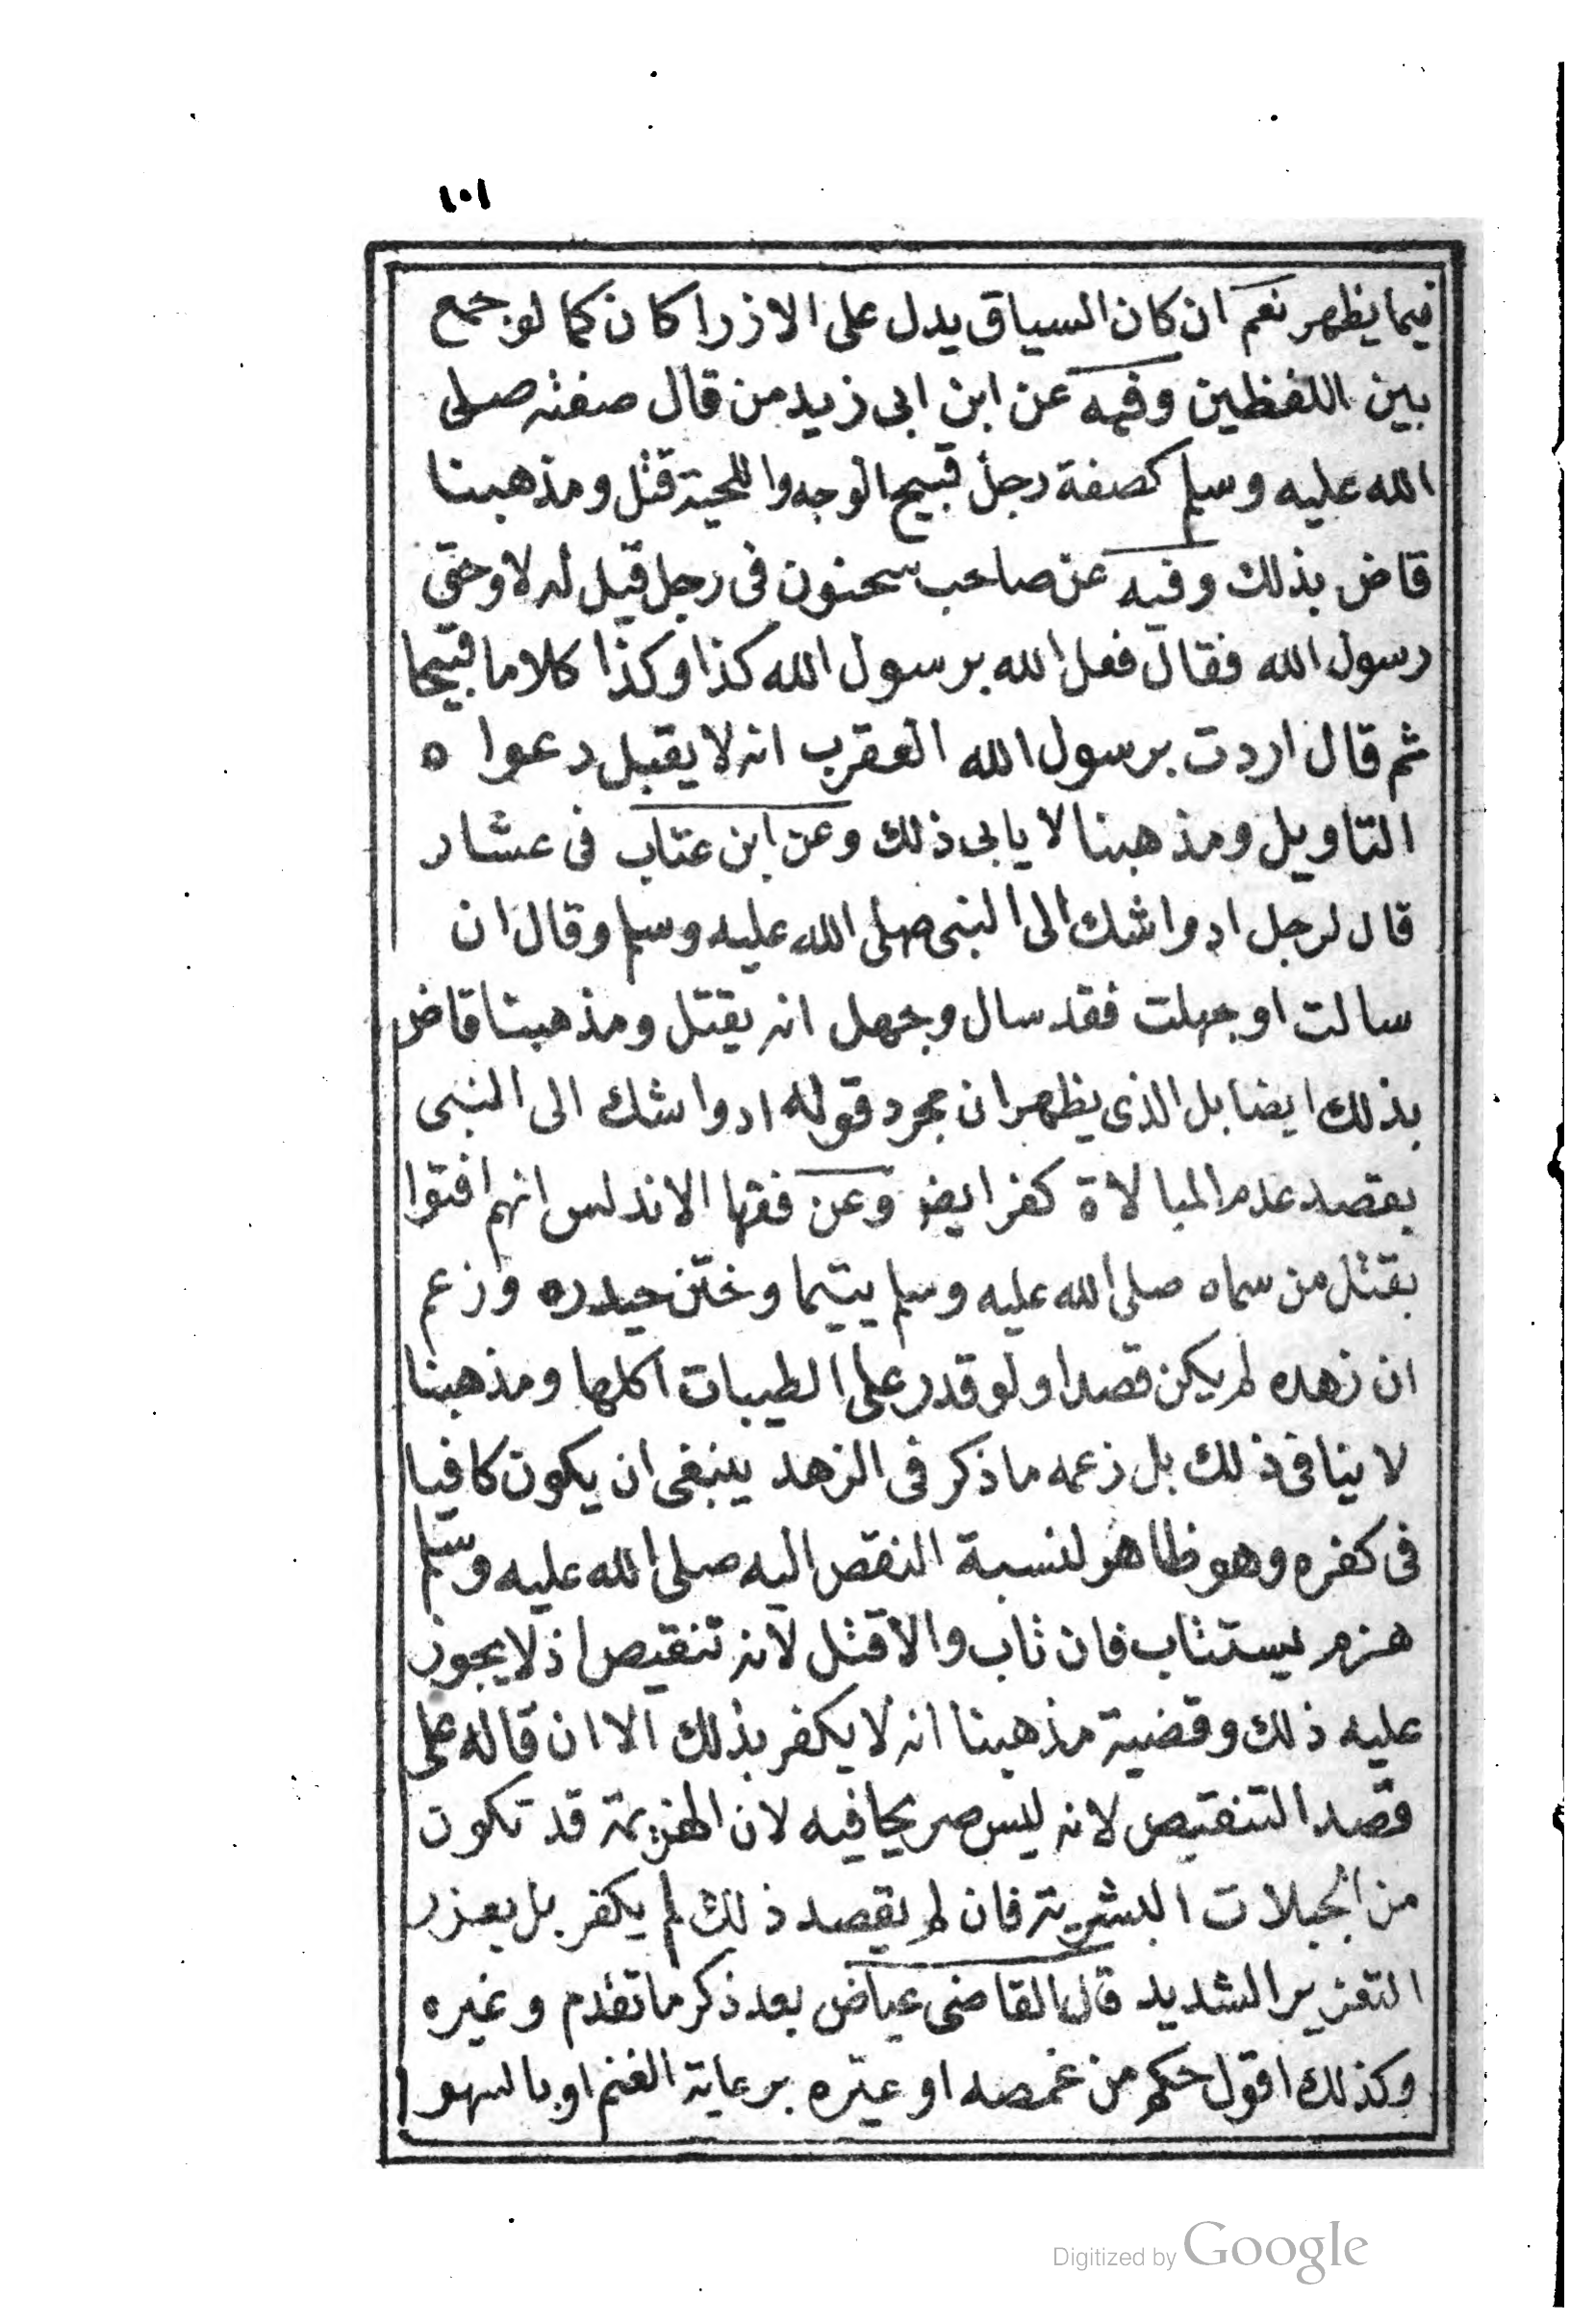 ١٠١
فيما يظهر نعم ان كان السياق يدل على الازرا كان كما لو جمع
بين اللفظين وفيه عن ابن ابى زيد من قال صفته صلى
الله عليه وسلم كصفة رجل قبيح الوجه واللحية قتل ومذهبنا
قاض بذلك وفيه عن صاحب سحنون فى رجل قيل له لا وحق
رسول الله فقال فعل الله برسول الله كذا وكذا كلاما قبيحا
ثم قال اردت برسول الله العقرب انه لا يقبل دعواه
التاويل ومذهبنا لا يابى ذلك وعن ابن عتاب فى عشار
قال لرجل ادو اشك الى النبى صلى الله عليه وسلم وقال ان
سالت او جهلت فقد سال وجهل انه يقتل ومذهبنا قاض
بذلك ايضا بل الذى يظهر ان مجرد قوله ادو اشك الى النبى
بقصد عدم المبالاة كفر ايضا وعن فقها الاندلس انهم افتوا
بقتل من سماه صلى الله عليه وسلم يتيما وختن حيدره وزعم
ان زهده لم يكن قصدا ولو قدر على الطيبات اكلها ومذهبنا
لا ينافى ذلك بل زعمه ما ذكر فى الزهد ينبغى ان يكون كافيا
فى كفره وهو ظاهر لنسبة النقص اليه صلى الله عليه وسلم
هزم يستتاب فان تاب والا قتل لانه تنقيص اذ لا يجوز
عليه ذلك وقضية مذهبنا انه لا يكفر بذلك الا ان قاله على
قصد التنقيص لانه ليس صريحا فيه لان الهزيمة قد تكون
من الجبلات البشرية فان لم يقصد ذلك لم يكفر بل يعزر
التعزير الشديد قال القاضى عياض بعد ذكر ما تقدم وغيره
وكذلك اقول حكم من غمصه او عيره برعاية الغنم او بالسهو
Digitized by Google